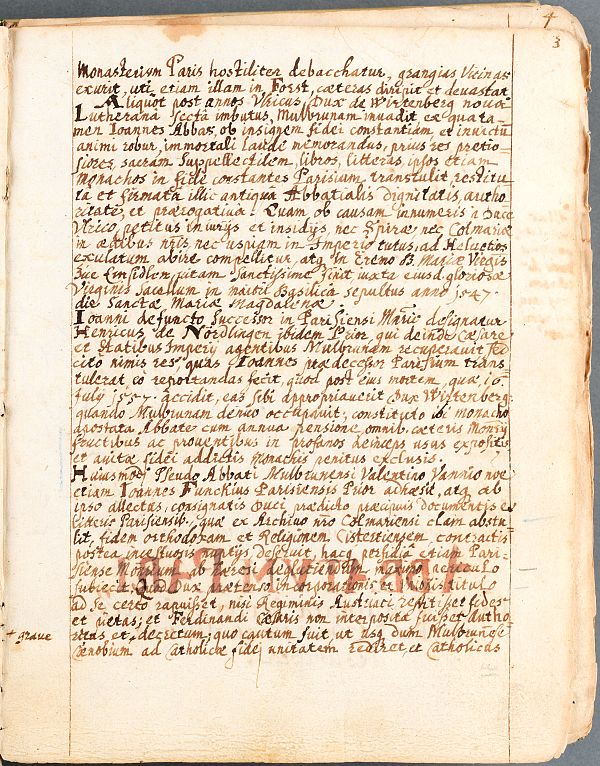 4
3
Monasterium Paris hostiliter debacchatur, grangias Vicinas
exurit, uti etiam illam in Forst, cæteras diripit et devastat
Aliquot post annos Vlricus Dux de Wirtenberg noua
Lutherana secta imbutus, Mulbrunam inuadit ex qua ta-
men Ioannes Abbas, ob insignem fidei constantiam, et inuictū
animi robur, immortali laude memorandus, prius res pretio-
siores, sacram Suppellectilem, libros, litteras, ipsos etiam
monachos in fide constantes Parisium transtulit, restitu
ta et firmata illic antiqua Abbatialis dignitatis, autho
ritate, et prærogatiua. Quam ob causam innumeris a Duce
Vlrico petitus iniurijs et insidijs, nec Spiræ, nec Colmariæ
in ædibus nr̄is, nec uspiam in Imperio tutus, ad Heluetios
exulatum abire compellitur, atq in Eremo B. Mariæ Virgīs
Einsidlen, uitam Sanctissime finit iuxta eiusd gloriosæ
Virginis Sacellum in maiori Basilica sepultus anno 1547
die Sanctæ Mariæ Magdalenæ.
Ioanni defuncto Successor in Parisiensi Mon̄rio designatur
Henricus de Nördlingen ibidem Prior, qui deinde Cæsare
et Statibus Imperij agentibus Mulbrunam recuperauit sed
cito nimis res, quas Ioannes prædecessor Parisium trans
tulerat, eo reportandas fecit, quod post eius mortem, quæ 10
July 1557. accidit, eas sibi appropriauerit Dux Wirtenberg.
quando Mulbrunam denuo occupauit, constituto ibi monacho
apostata Abbate cum annua pensione, omnib. cæteris Monrij
fructibus ac prouentibus in profanos deinceps usus expositis
et auitæ fidei addictis monachis penitus exclusis.
Huiusmodi Pseudo Abbati Mulbrunensi Valentino Vannio noe
etiam Ioannes Funckius Parisiensis Prior adhæsit, atq ab
ipso allectus, consignatis Duci prædicto præcipuis documentis et
litteris Parisiensib. quæ ex Archiuo nr̄o Colmariensi clam abstu
lit, fidem orthodoxam et Religionem Cistertiensem, contractis
postea incestuosis nuptijs, deseruit, hacq perfidia etiam Pari-
siense Mon̄rium ab hæresi depascendum, maximo periculo
subiecit, quod Dux prætenso incorporationis et Monist titulo
ad se certo rapuisset, nisi Regiminis Austriaci restitisset fides
et pietas, et Ferdinandi Cæsaris non interposita fuisset autho
ritas et decretum, quo cautum fuit, ut usq dum Mulbrunēse
Cœnobium ad Catholicæ fidei unitatem rediret, et Catholicus
+ graue